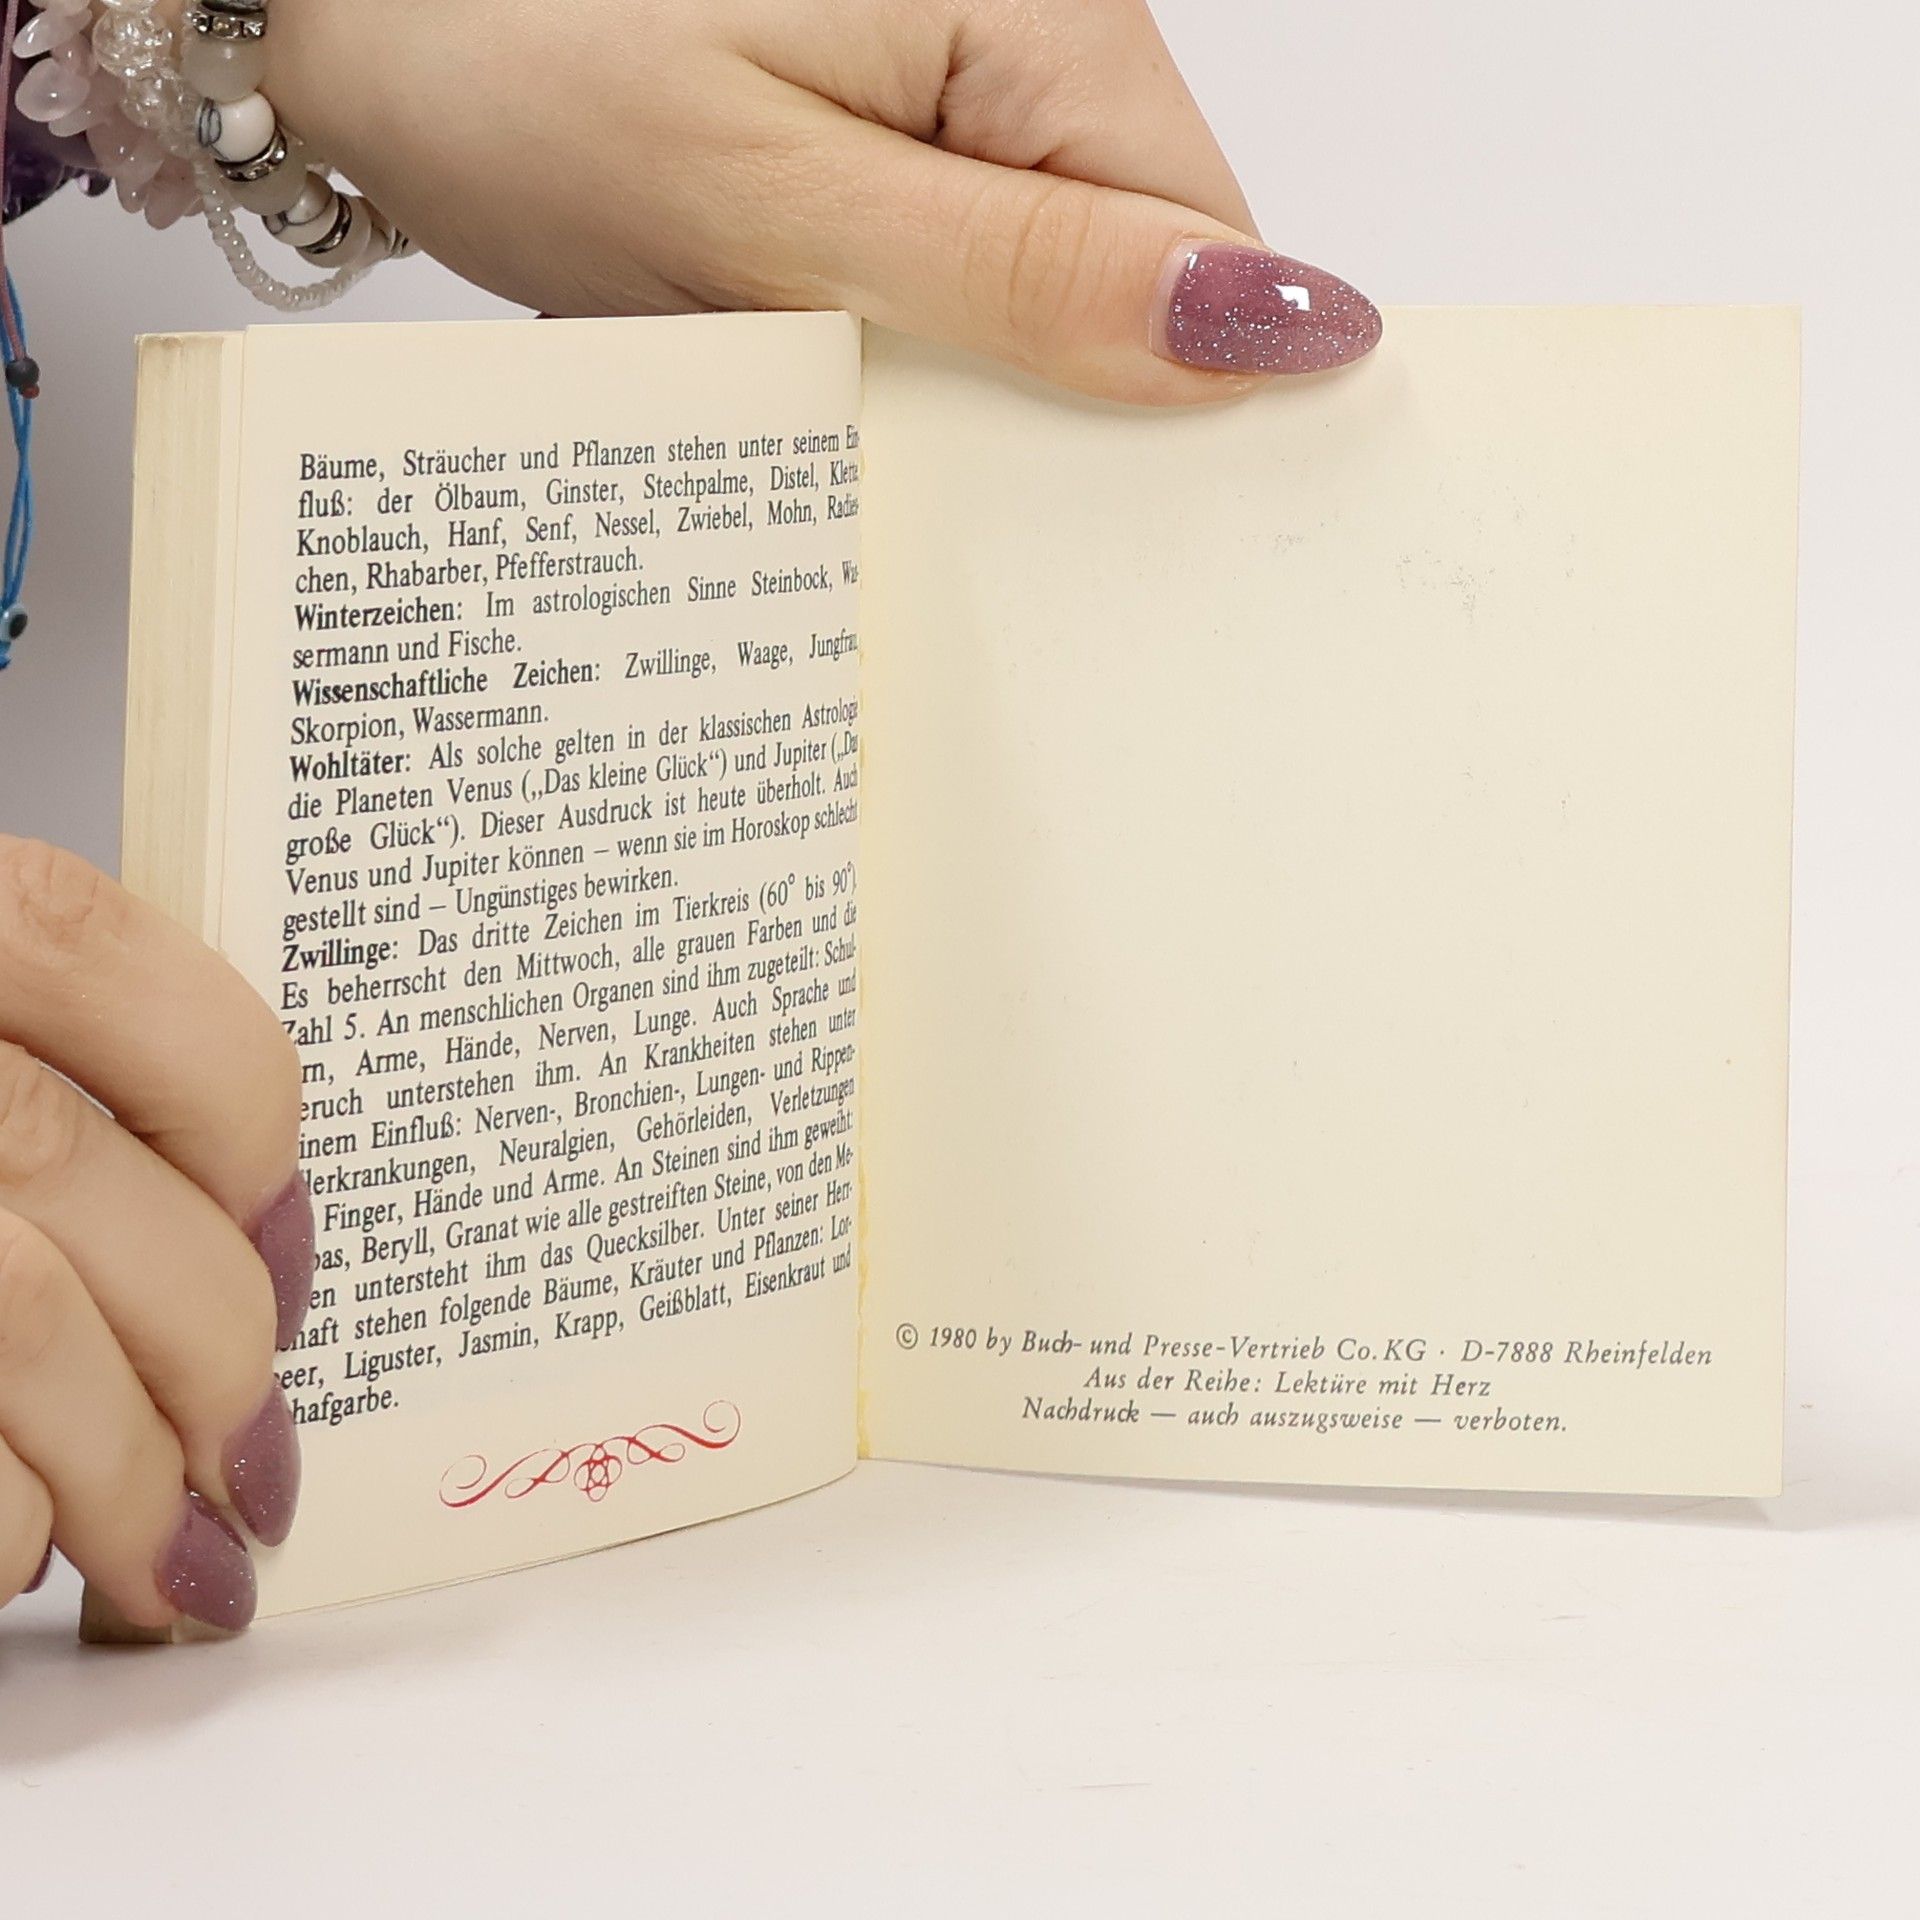 Bäume, Sträucher und Pflanzen stehen unter seinem Ein-
fluß: der Ölbaum, Ginster, Stechpalme, Distel, Klette
Knoblauch, Hanf, Senf, Nessel, Zwiebel, Mohn, Radies-
chen, Rhabarber, Pfefferstrauch.
Winterzeichen: Im astrologischen Sinne Steinbock, Was-
sermann und Fische.
Wissenschaftliche Zeichen: Zwillinge, Waage, Jungfrau,
Skorpion, Wassermann.
Wohltäter: Als solche gelten in der klassischen Astrologie
die Planeten Venus („Das kleine Glück“) und Jupiter („Das
große Glück“). Dieser Ausdruck ist heute überholt. Auch
Venus und Jupiter können – wenn sie im Horoskop schlecht
gestellt sind – Ungünstiges bewirken.
Zwillinge: Das dritte Zeichen im Tierkreis (60° bis 90°).
Es beherrscht den Mittwoch, alle grauen Farben und die
Zahl 5. An menschlichen Organen sind ihm zugeteilt: Schul-
rn, Arme, Hände, Nerven, Lunge. Auch Sprache und
eruch unterstehen ihm. An Krankheiten stehen unter
inem Einfluß: Nerven-, Bronchien-, Lungen- und Rippen-
lerkrankungen, Neuralgien, Gehörleiden, Verletzungen
Finger, Hände und Arme. An Steinen sind ihm geweiht:
pas, Beryll, Granat wie alle gestreiften Steine, von den Me-
en untersteht ihm das Quecksilber. Unter seiner Herr-
haft stehen folgende Bäume, Kräuter und Pflanzen: Lor-
eer, Liguster, Jasmin, Krapp, Geißblatt, Eisenkraut und
hafgarbe.
© 1980 by Buch- und Presse-Vertrieb Co. KG · D-7888 Rheinfelden
Aus der Reihe: Lektüre mit Herz
Nachdruck — auch auszugsweise — verboten.